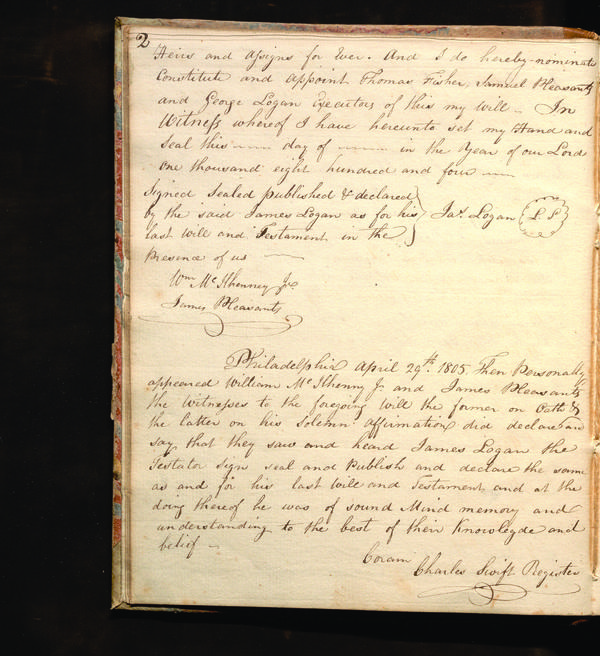 2
Heirs and assigns for Ever. And I do hereby nominate
Constitute and appoint Thomas Fisher, Samuel Pleasants
and George Logan Executors of this my Will – In
Witness whereof I have hereunto set my Hand and
Seal this —— day of —— in the Year of our Lord
One thousand eight hundred and four ——
Signed Sealed published & declared
by the said James Logan as for his
last will and Testament in the
presence of us ——
Jas. Logan
L S
Wm McIlhenney Jr.
James Pleasants
Philadelphia April 29th. 1805 Then Personally
appeared William McIlhenny Jr and James Pleasants
the Witnesses to the foregoing Will the former on Oath &
the latter on his Solemn affirmation did declare and
say that they saw and heard James Logan the
Testator sign seal and Publish and declare the same
as and for his last Will and Testament and at the
doing thereof he was of sound Mind memory and
understanding to the best of their Knowlegde and
belief –
Coram
Charles Swift Register